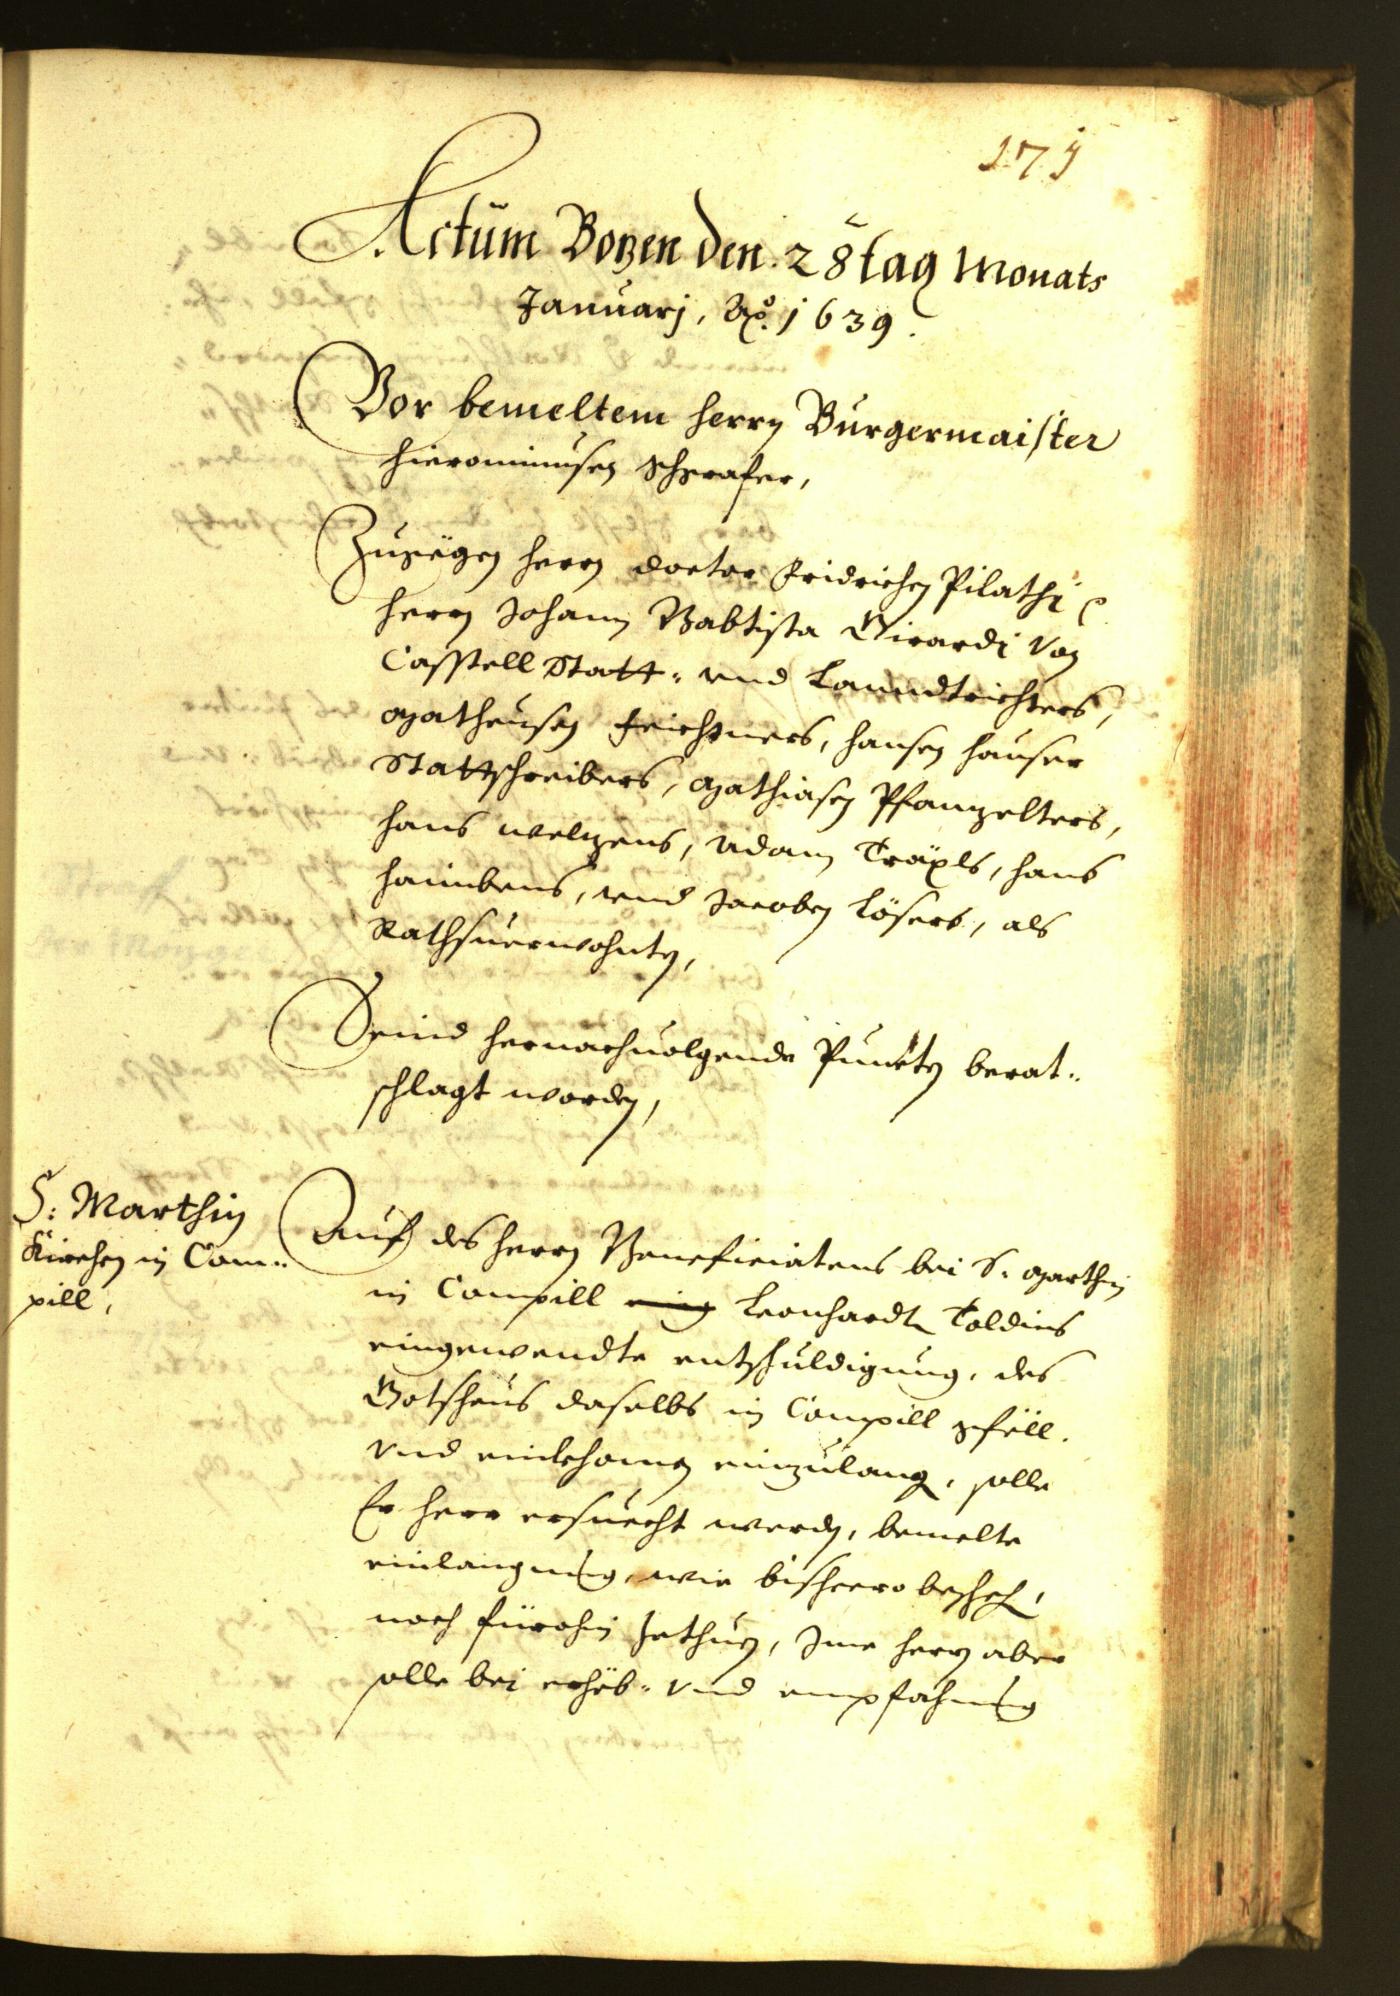 171
Actum Bozen den. 28 tag Monats
Januarj, Aõ. 1639.
Vor bemeltem herrn Burgermaister
Hieronimusen Schgrafer,
Zusëgen herrn doctor Fridrichen Pilathi
herrn Johann Babtista Girardi von
Casstell Statt- vnd Lanndtrichters,
Matheusen Feichtners, Hansen Hauser
Stattschreibers, Mathiasen Pfanzelters,
Hans Welzens, Adam Träxls, Hans
Haimbens, vnd Jacoben Lösers, als
Rathsuerwohnte,
Seind hernachuolgende Puncten berat-
schlagt worden,
S: Marthin
Kirchen in Cam-
pill,
Auf des herrn Beneficiatens bei S. Marthin
in Campill Leonhardt Toldins
eingewendte entschuldigung, des
Gotshaus daselbs in Campill gfëll.
vnd einkhomen einzulang, solle
Er herr ersuecht werden, bemelte
einlangung, wie bishero beschech,
noch fürohin zethun, Jme herrn aber
solle bei erhëb- vnd empfahung